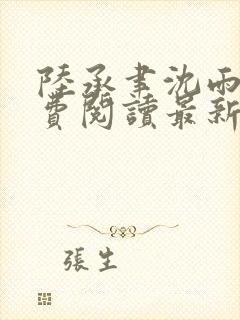 陸承聿沈雨
費閱讀最新
張生